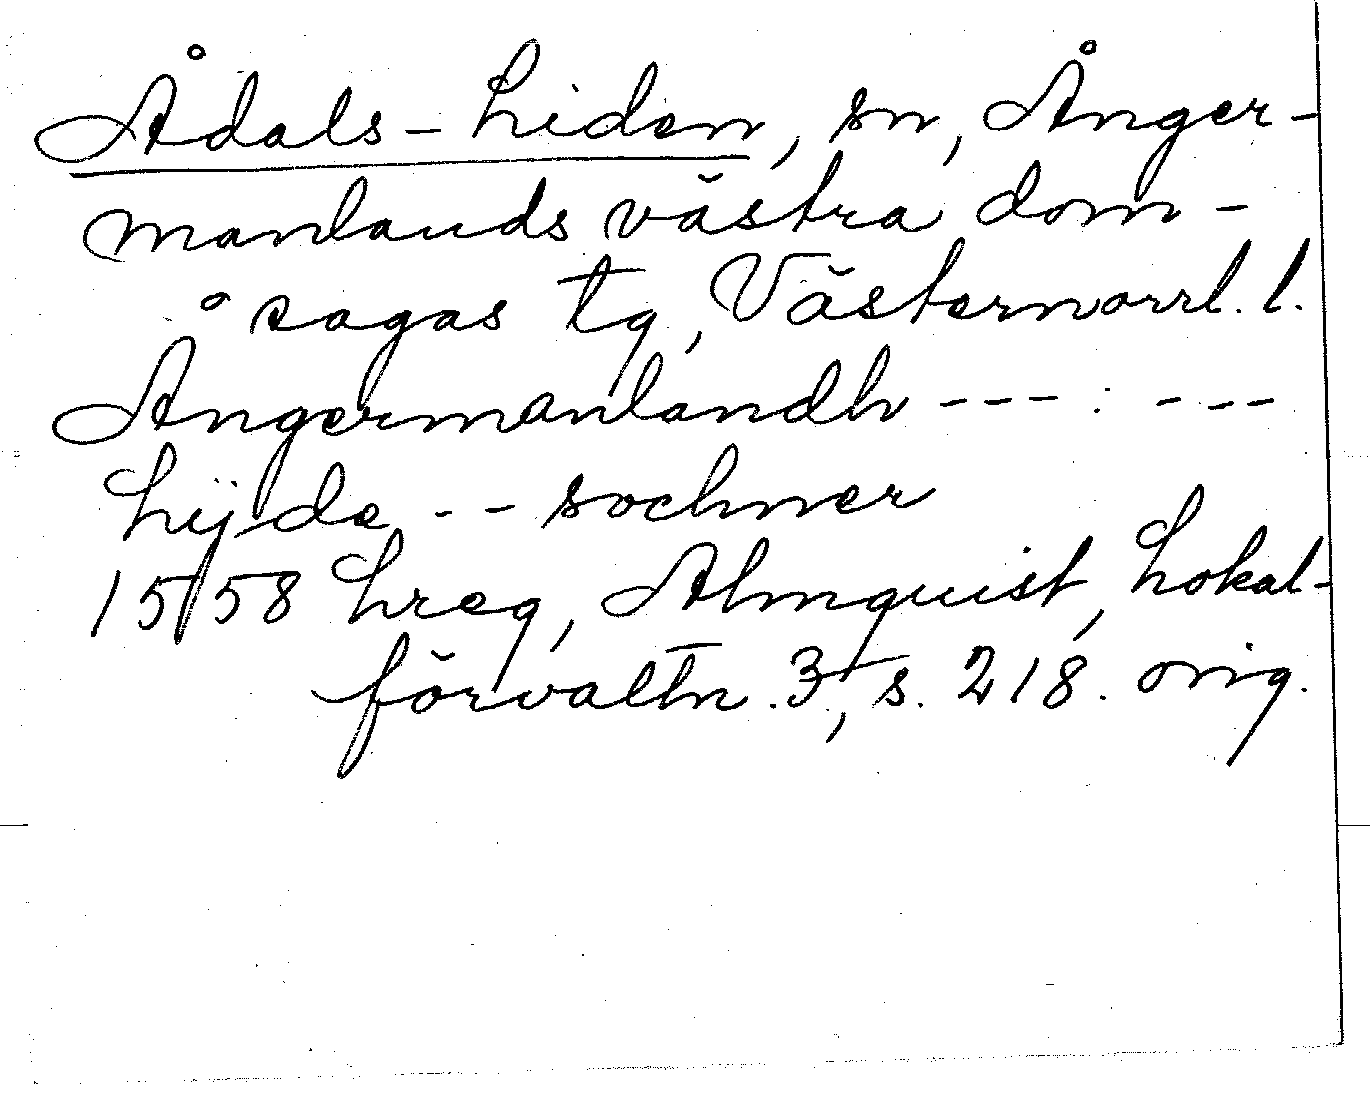 Ådals-Liden, sn, Ånger-
manlands västra dom-
sagas tg, Västernorrl. l.
Ångermanlandh --- : ---
Lijde -- sochner
1558 Lreg, Almquist, Lokal-
förvaltn. 3, s. 218. orig.